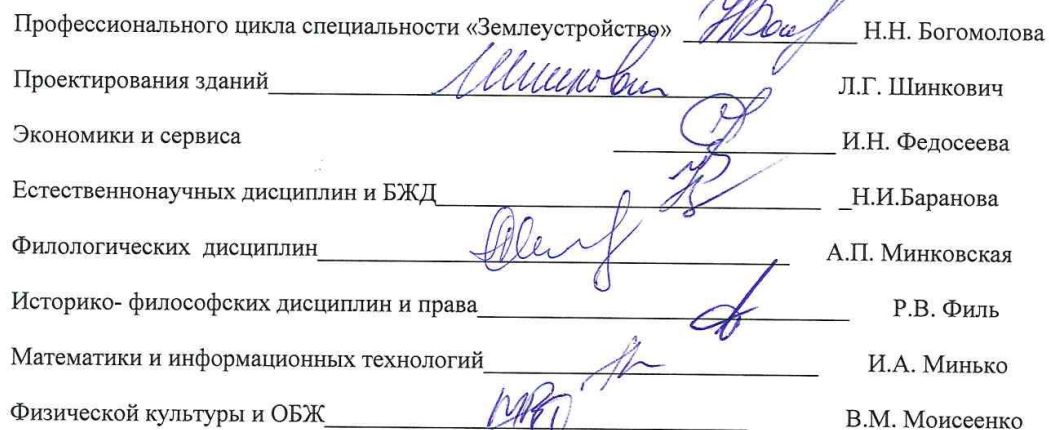 Профессионального цикла специальности «Землеустройство» Н.Н. Богомолова
Проектирования зданий Шинкович Л.Г. Шинкович
Экономики и сервиса И.Н. Федосеева
Естественнонаучных дисциплин и БЖД _Н.И.Баранова
Филологических дисциплин А.П. Минковская
Историко- философских дисциплин и права Р.В. Филь
Математики и информационных технологий И.А. Минько
Физической культуры и ОБЖ В.М. Моисеенко